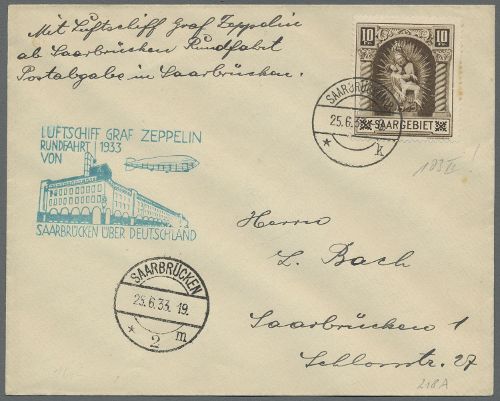 Mit Luftschiff Graf Zeppelin
ab Saarbrücken Rundfahrt
Postabgabe in Saarbrücken.
10 Fr. 10 Fr.
SAARGEBIET
SAARBRÜCKEN
25.6.33.
* k
LUFTSCHIFF GRAF ZEPPELIN
RUNDFAHRT 1933
VON
SAARBRÜCKEN ÜBER DEUTSCHLAND
Herrn
L. Bach
Saarbrücken 1
Schlossstr. 27
SAARBRÜCKEN
25.6.33. 19.
* 2 m
218A